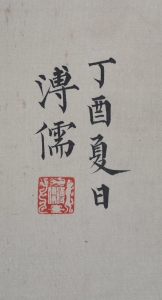 丁酉夏日
溥儒